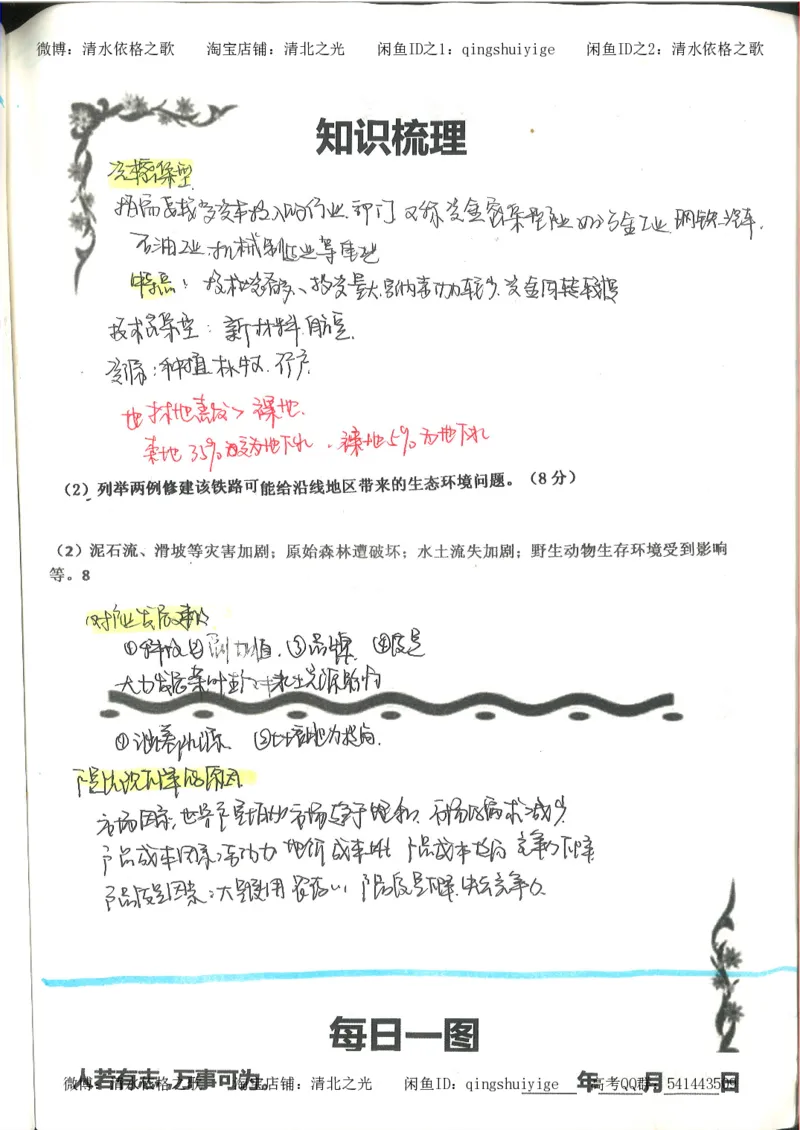 微博：清水依格之歌 淘宝店铺：清北之光 闲鱼ID之1：qingshuiyige 闲鱼ID之2：清水依格之歌
知识梳理
指需要较多资本投入的行业、部门 又称资金密集型工业 如冶金工业、钢铁、汽车、
石油工业、机械制造业等重工业
特点：技术装备多、投资量大、容纳劳动力较少、资金周转较慢
技术密集型：新材料、航空
资源：种植、林牧、矿产
林地蒸发>裸地
林地35%变为地下水，裸地5%为地下水
（2）列举两例修建该铁路可能给沿线地区带来的生态环境问题。（8分）
（2）泥石流、滑坡等灾害加剧；原始森林遭破坏；水土流失加剧；野生动物生存环境受到影响
等。8
①科技②附加值、③品牌、④质量
①涵养水源
市场因素：世界市场趋于饱和、市场需求减少
产品成本因素：劳动力 地价 成本 产品成本 竞争力下降
产品质量因素：大量使用农药 产品质量下降 竞争力
每日一图
人若有志，万事可为。 年 月 日
微博：清水依格之歌 淘宝店铺：清北之光 闲鱼ID：qingshuiyige 高考QQ群：541443509